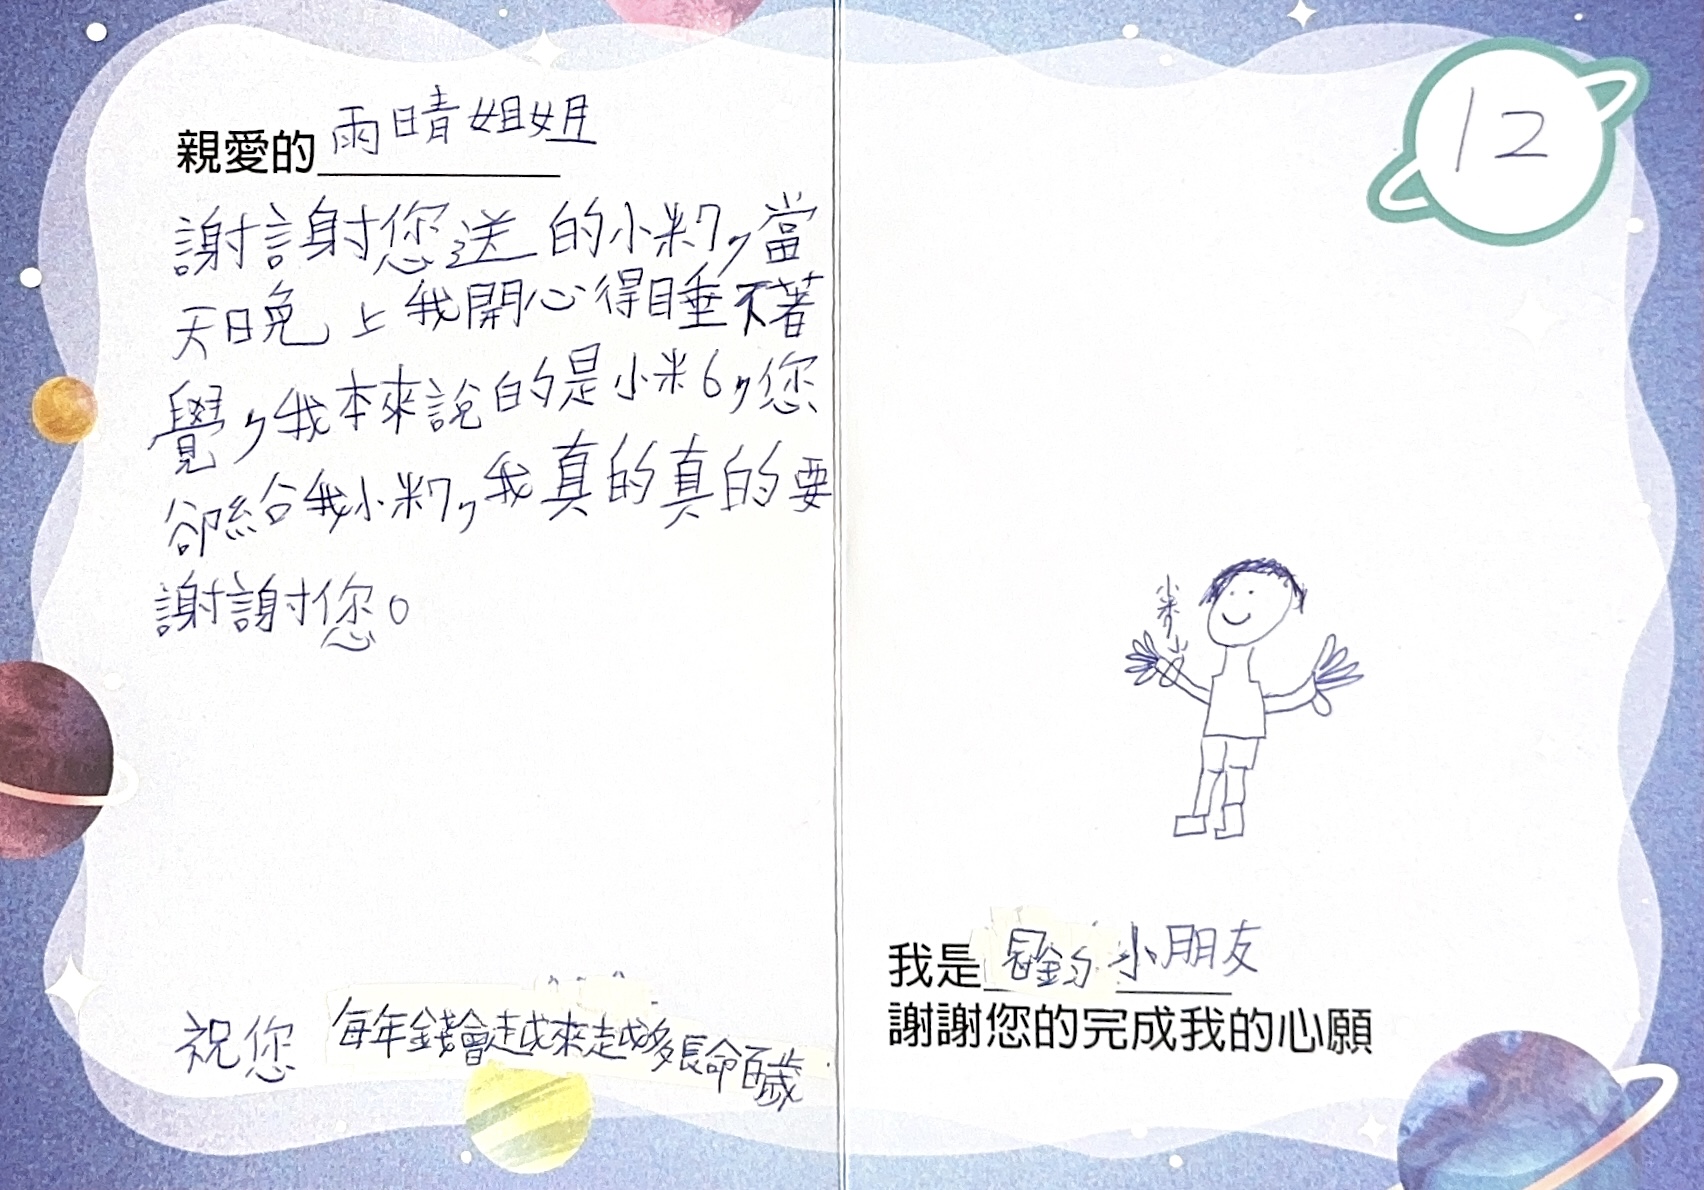 親愛的雨晴姐姐
謝謝您送的小米7,當
天日晚上我開心得睡不著
覺,我本來說的是小米6,您
卻給我小米7,我真的真的要
謝謝您。
祝您 每年錢會越來越多長命百歲
12
小米7
我是冠鈞小朋友
謝謝您的完成我的心願